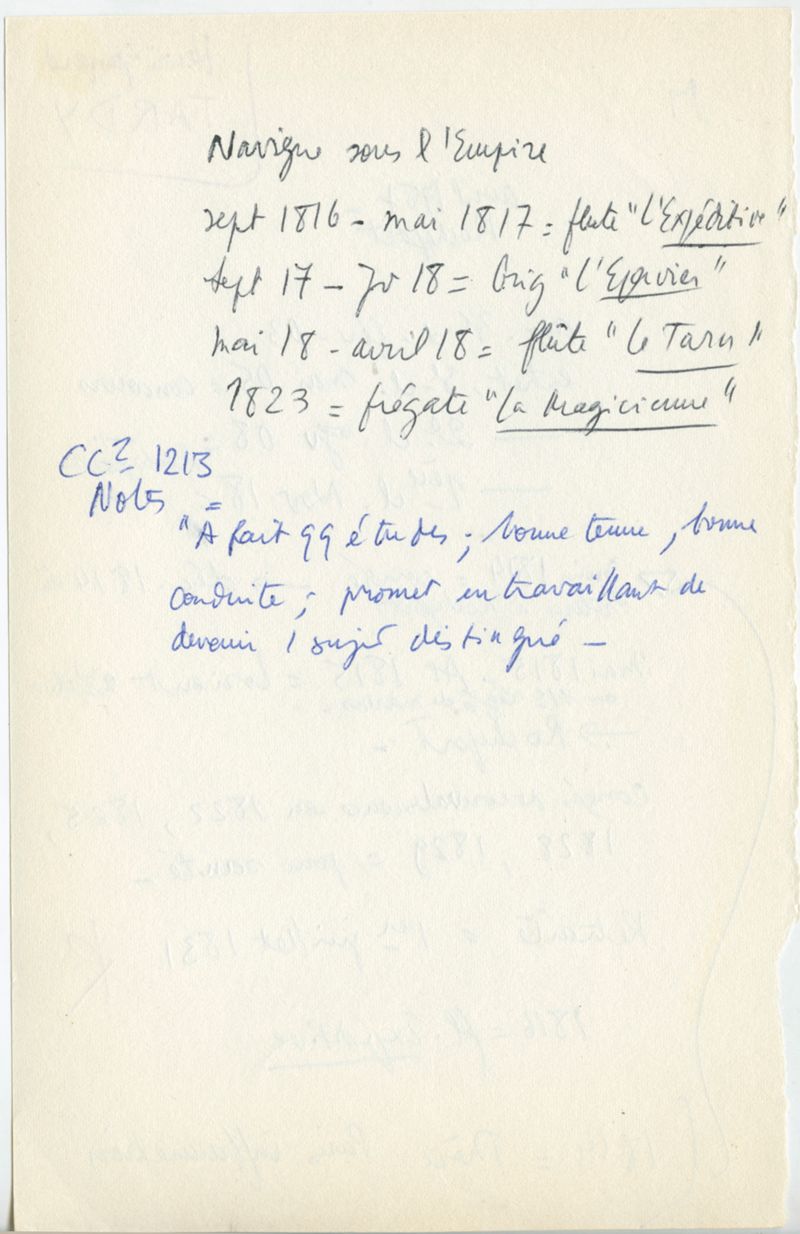 Navigue sous l'Empire
sept 1816 - mai 1817 = flute "L'Expéditive"
Sept 17 - Jv 18 = brig "L'Epervier"
mai 18 - avril 18 = flûte "Le Tarn"
1823 = frégate "La Magicienne"
CC² 1213
Notes =
"A fait qq études ; bonne tenue, bonne
conduite ; promet en travaillant de
devenir 1 sujet distingué -